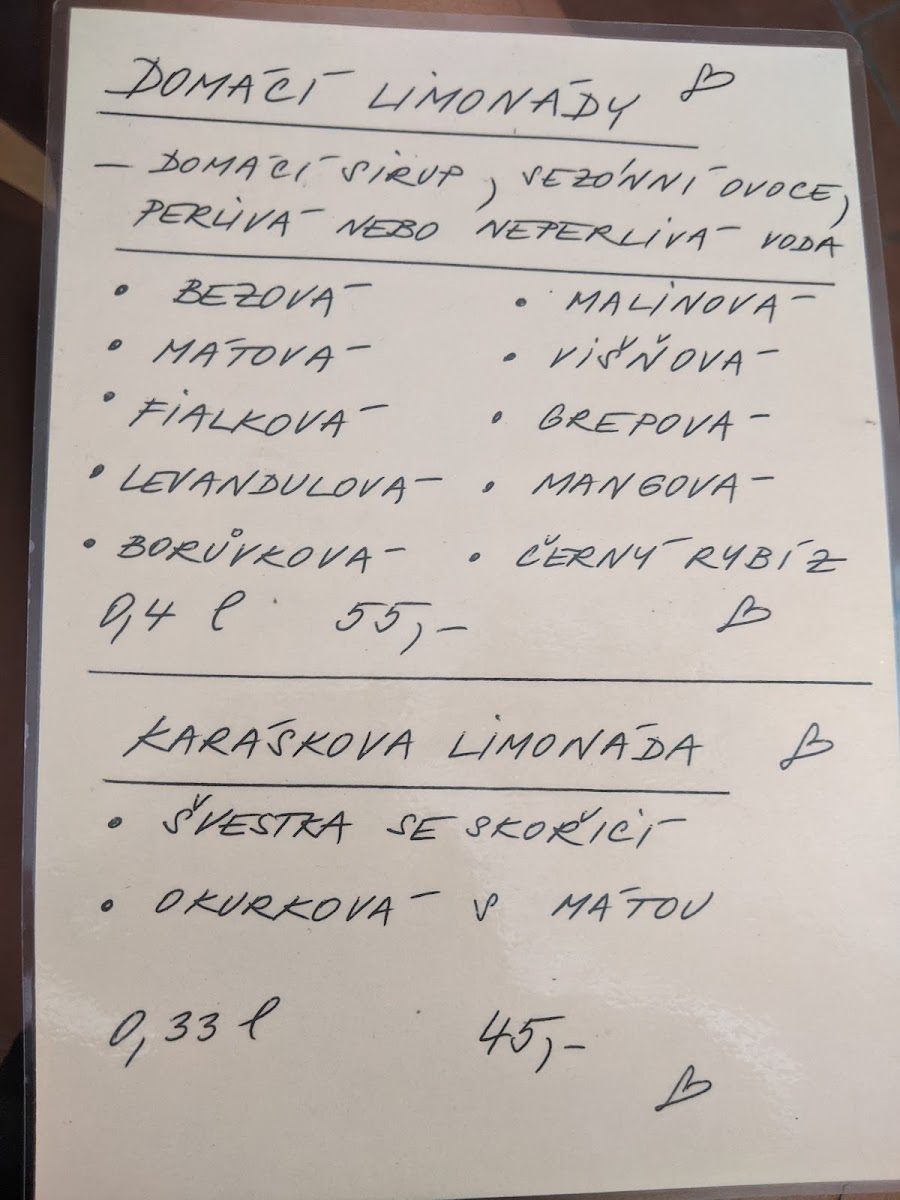 DOMÁCÍ LIMONÁDY
- DOMÁCÍ SIRUP, SEZÓNNÍ OVOCE,
PERLIVÁ NEBO NEPERLIVÁ VODA
• BEZOVÁ • MALINOVÁ
• MÁTOVÁ • VIŠŇOVÁ
• FIALKOVÁ • GREPOVÁ
• LEVANDULOVÁ • MANGOVÁ
• BORŮVKOVÁ • ČERNÝ RYBÍZ
0,4 l 55,-
KARÁSKOVA LIMONÁDA
• ŠVESTKA SE SKOŘICÍ
• OKURKOVÁ S MÁTOU
0,33 l 45,-